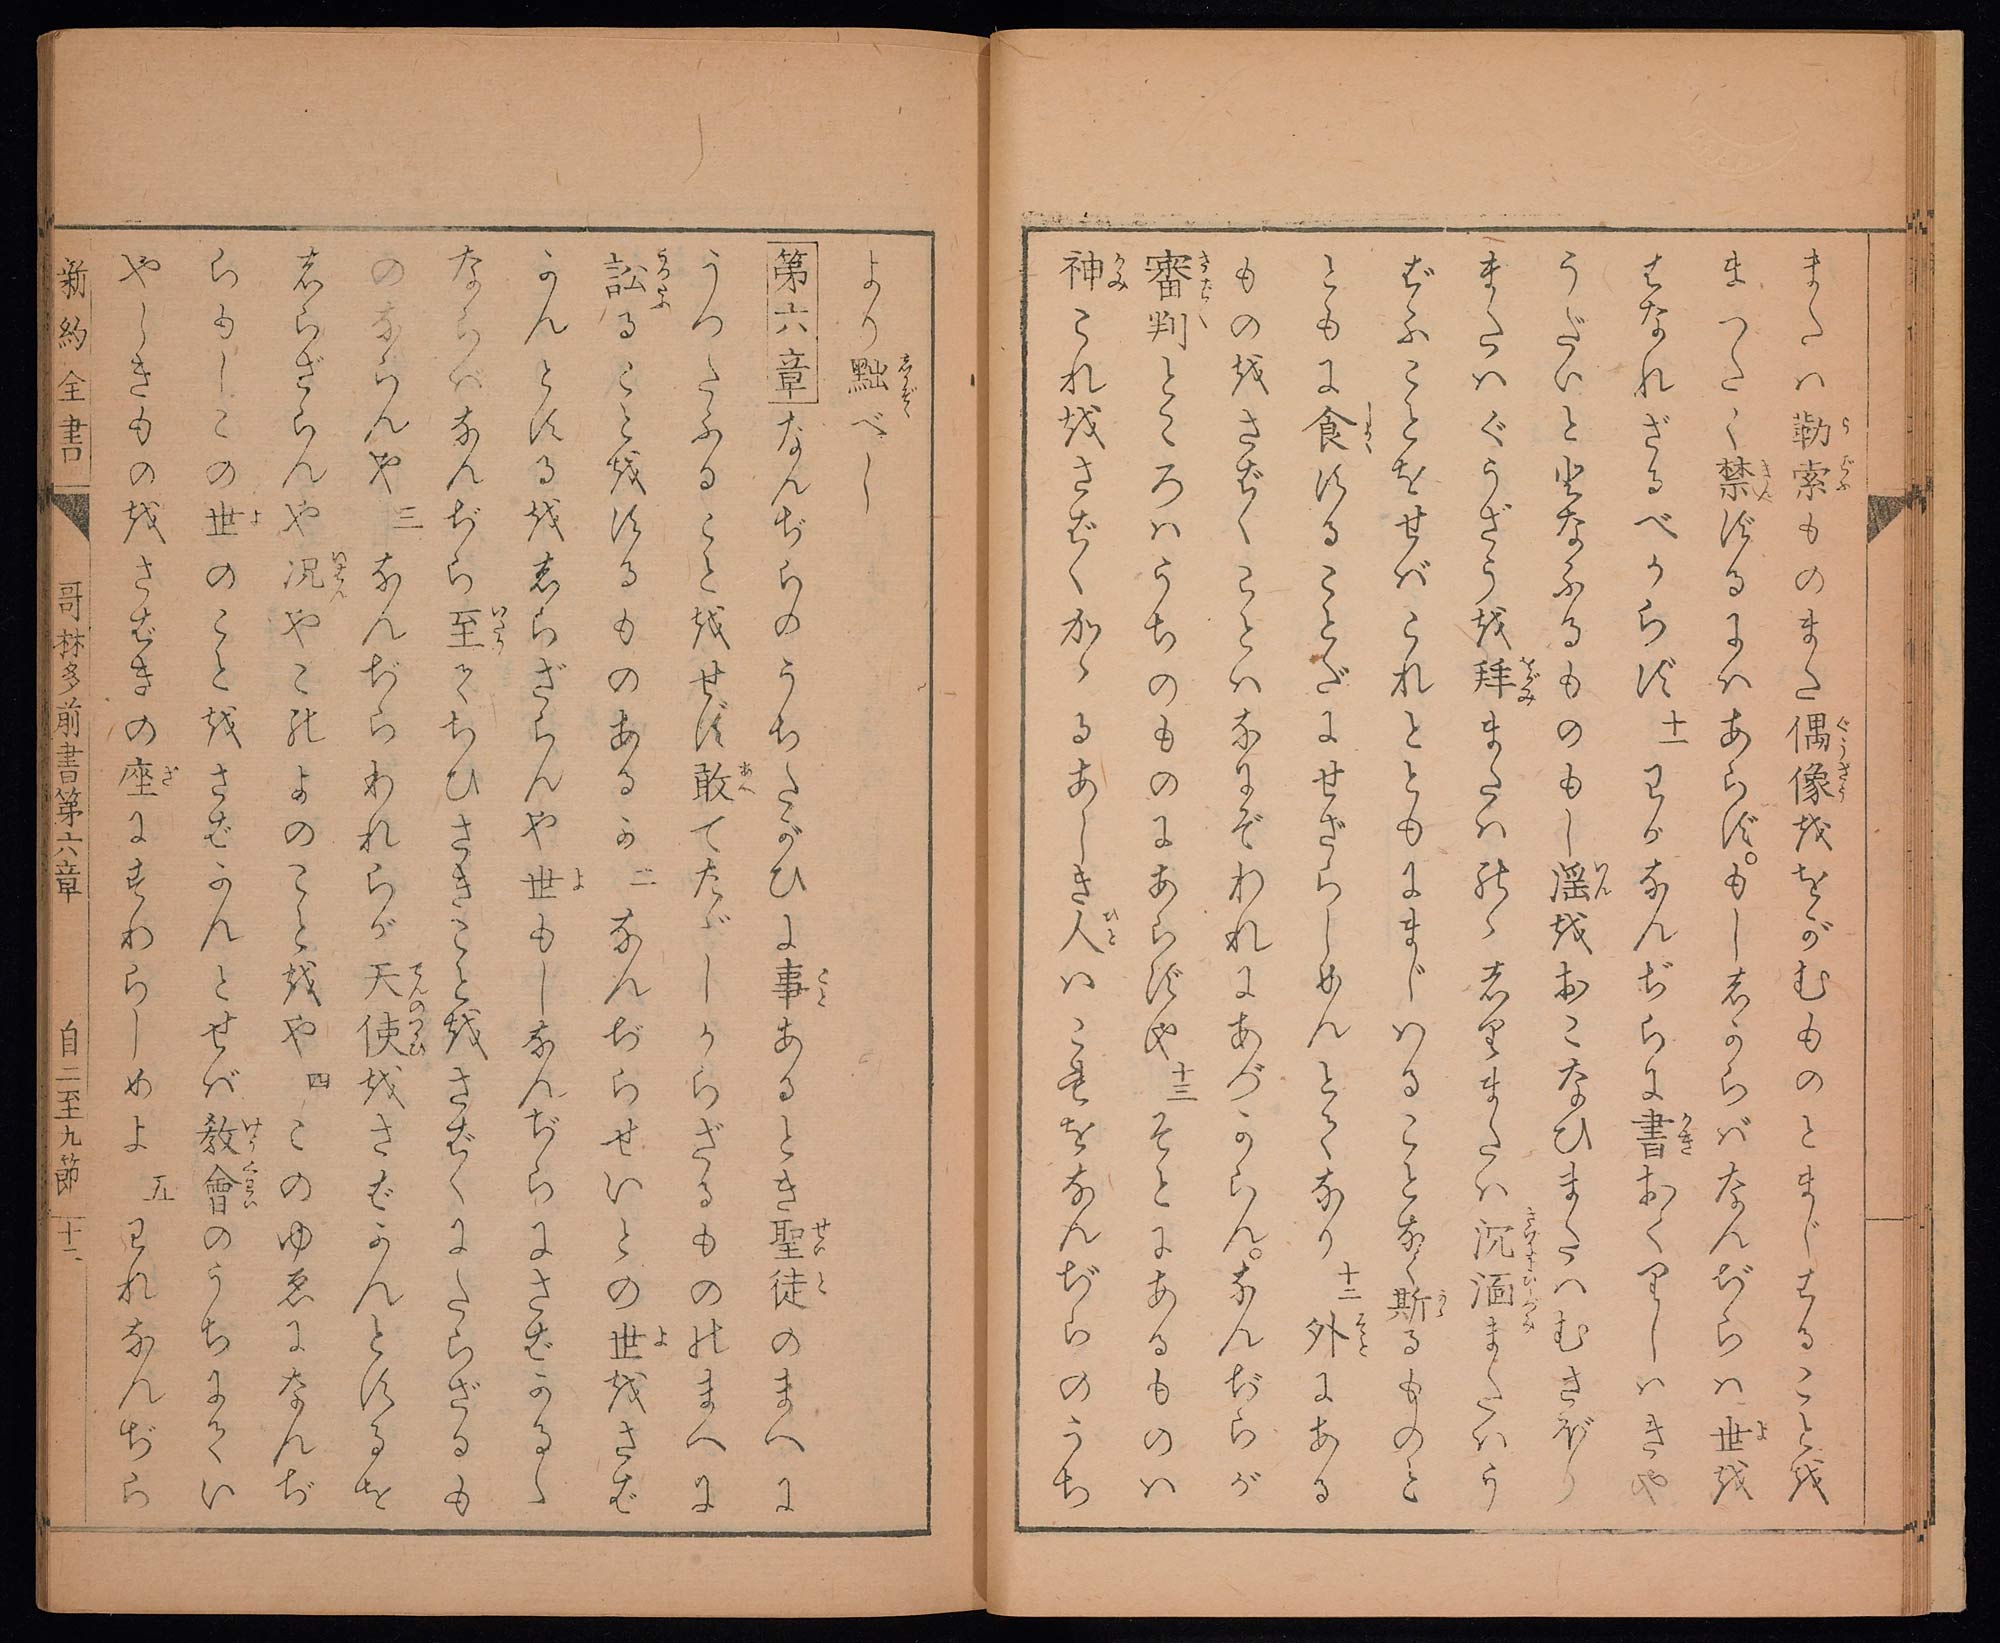 または勒索ものまた偶像をゝがむものとまじはることを
まつたく禁ずるにはあらず。もししからばなんぢらは世を
はなれざるべからず十一われなんぢらに書おくりしはきや
うだいととなふるものもし淫をおこなひまたはむさぼり
またはぐうざうを拜またはのゝしりまたは沉湎またはう
ばふことをせばこれとともにまじはることなく斯るものと
ともに食することだにせざらしめんとてなり十二外にある
ものをさばくことはなにぞわれにあづからん。なんぢらが
審判ところはうちのものにあらずや十三そとにあるものは
神これをさばくかゝるあしき人はこれをなんぢらのうち
より黜べし
第六章なんぢらのうちたがひに事あるとき聖徒のまへに
うつたふることをせず敢てたゞしからざるもののまへに
訟ることをするものあるか二なんぢらせいとの世をさば
かんとするをしらざらんや世もしなんぢらにさばかるゝ
ならばなんぢら至てちひさきことをさばくにたらざるも
のならんや三なんぢらわれらが天使をさばかんとするを
しらざらんや况やこのよのことをや四このゆゑになんぢ
らもしこの世のことをさばかんとせば教會のうちにてい
やしきものをさばきの座にすわらしめよ五われなんぢら
新約全書
哥林多前書第六章
自二至九節
十二